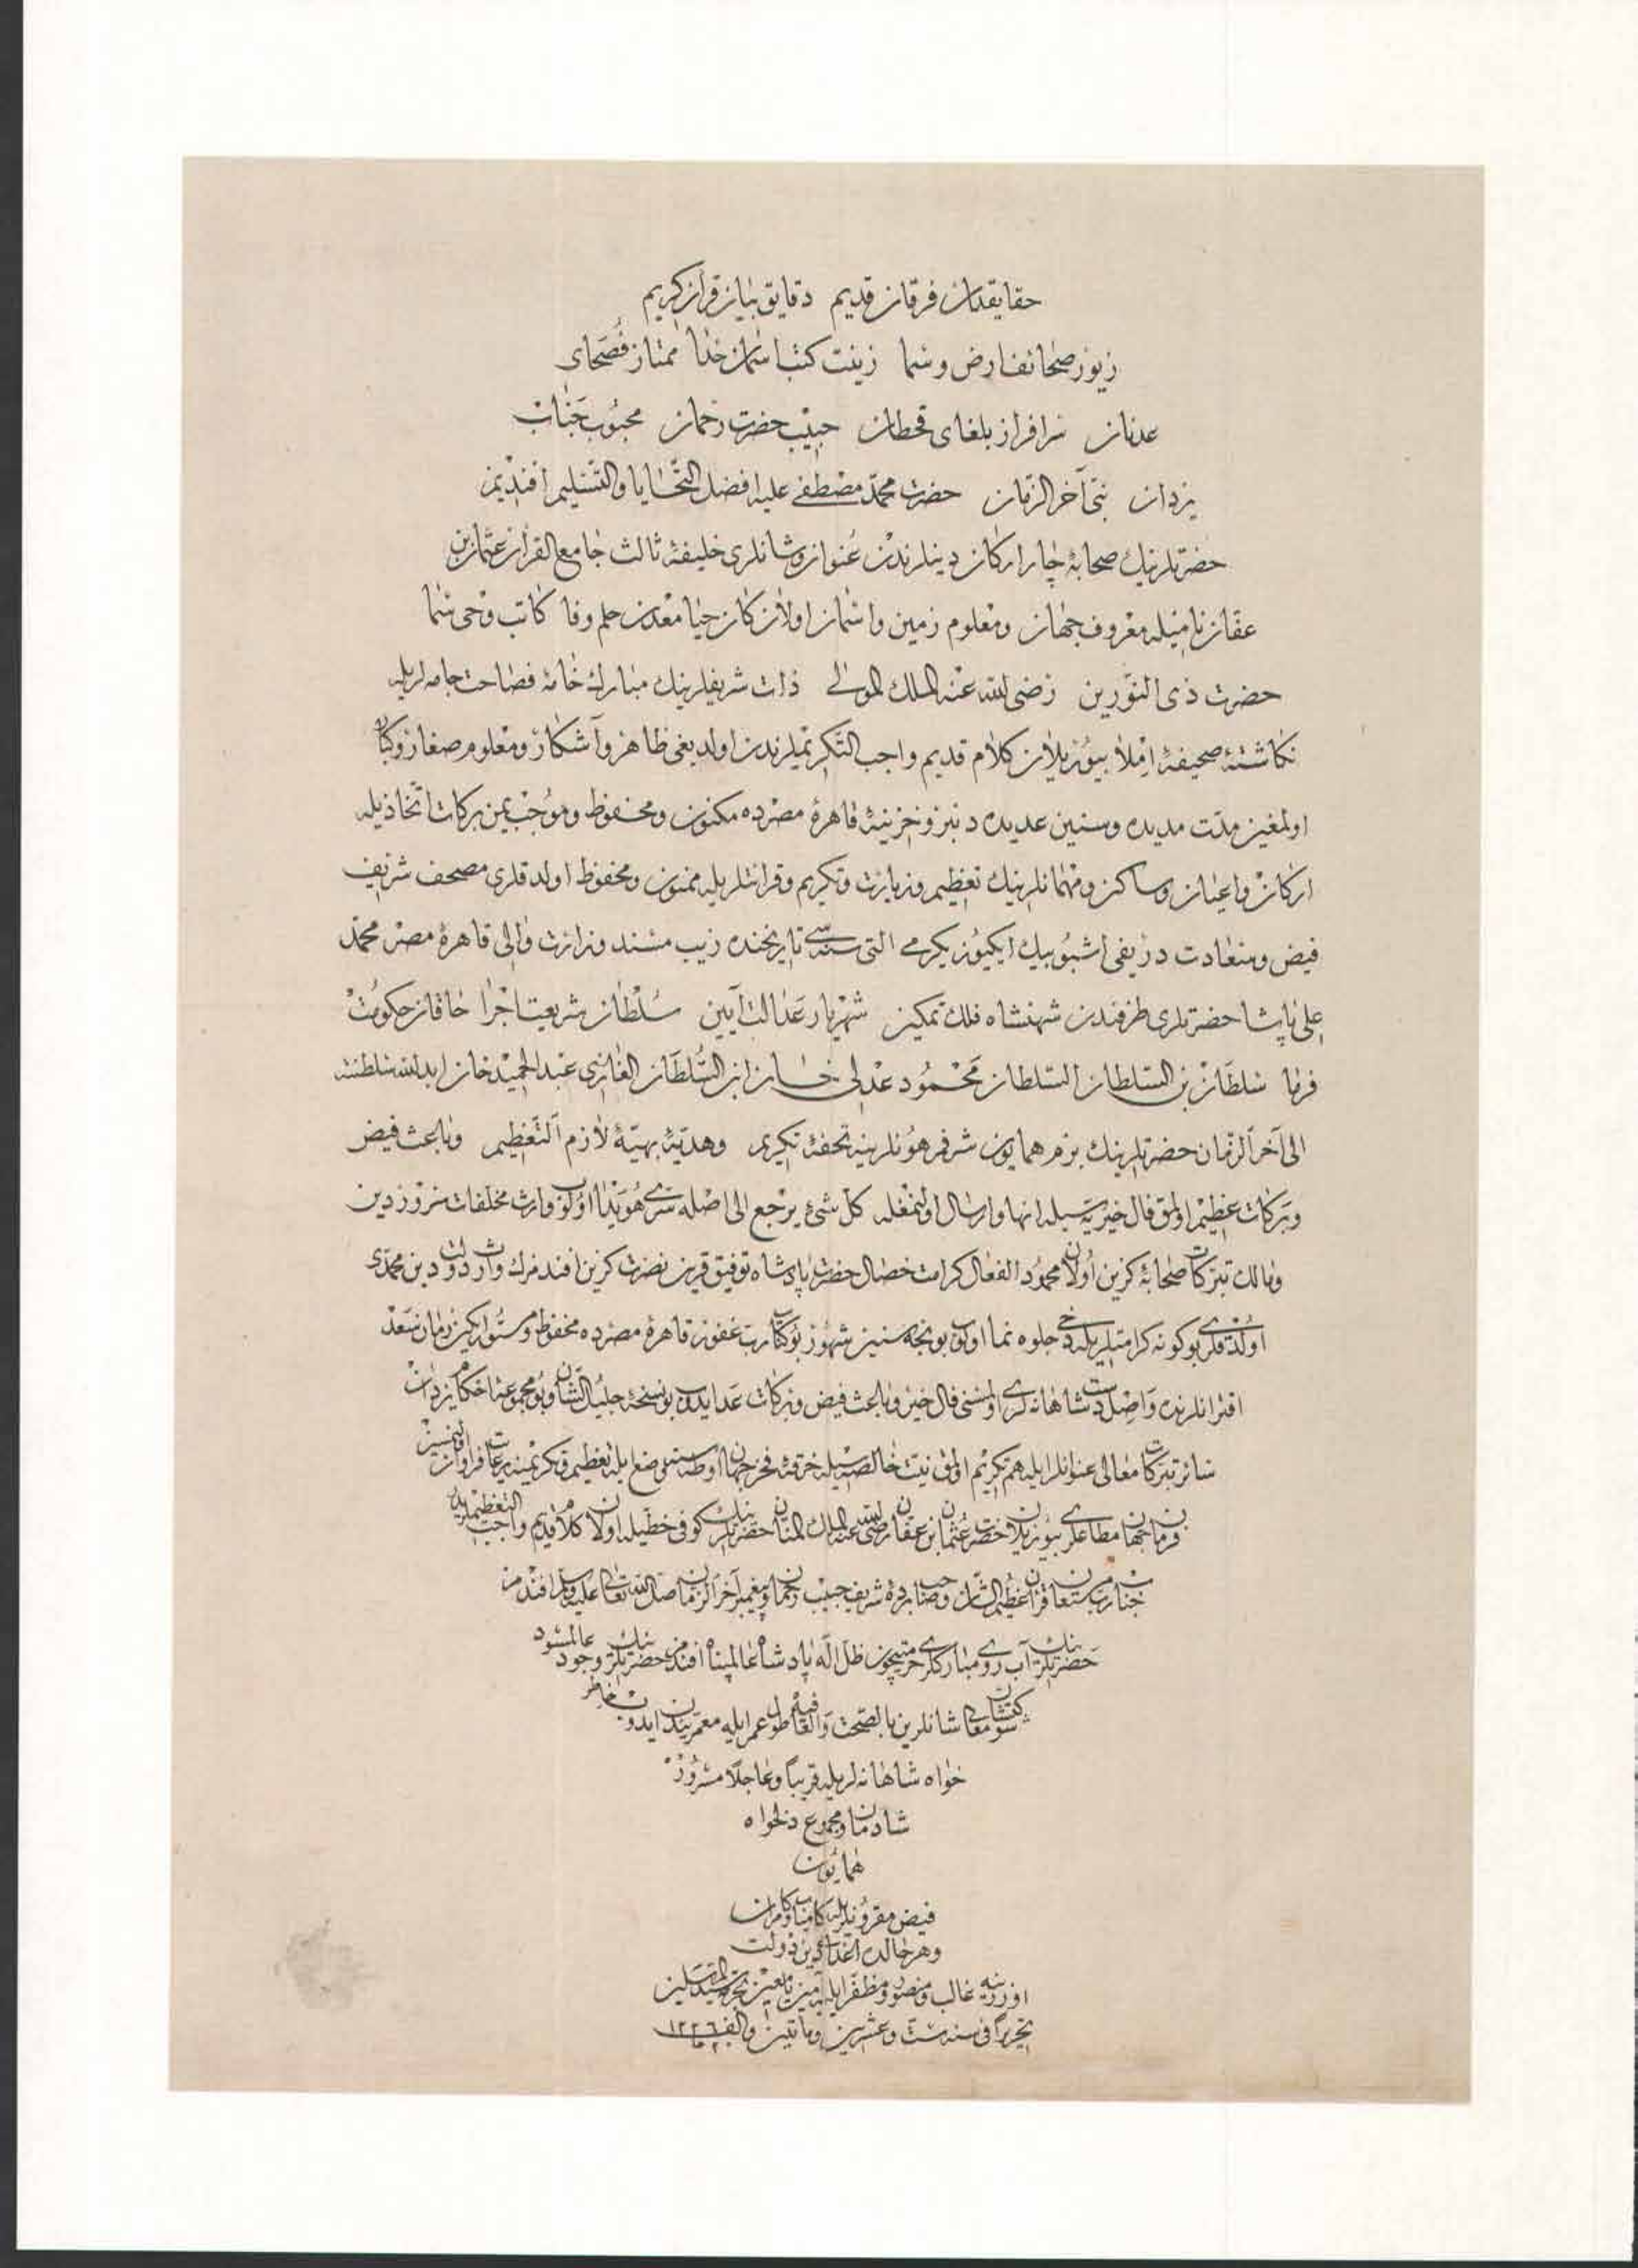 حقایقدان فرقان قدیم دقایق بیان قرآن کریم
زیور صحائف ارض و سما زینت کتب آسمان خدا ممتاز فُصَحای
عدنان سرافراز بلغای قحطان حبیب حضرت رحمان محبوب جناب
یزدان نبیّ آخر الزمان حضرت محمّد مصطفی علیه افضل التّحایا والتّسلیم افندیمز
حضرتلرینك صحابهٔ چار اركان دینلرندن عُنوان و شانلری خلیفهٔ ثالث جامع القرآن عثمان بن
عفّان نامیله معروف جهان و معلوم زمین و آسمان اولان كان حیا معدن حلم و وفا كاتب وحی سما
حضرت ذی النّورین رضی الله عنه الملك المولی ذات شریفلرینك مبارك خامهٔ فصاحت جامه لریله
نكاشتهٔ صحیفهٔ املا بیوریلان كلام قدیم واجب التّكریملرندن اولدیغی ظاهر و آشكار و معلوم صغار و كبار
اولمغین مدّت مدیده و سنین عدیده دنبرو خزینهٔ قاهرهٔ مصرده مكنون و محفوظ و موجب یمن بركات اتّخاذیله
اركان و اعیان و ساكن و مهمانلرینك تعظیم و زیارت و تكریم و قرائتلریله ممنون و محفوظ اولدقلری مصحف شریف
فیض و سعادت ردیفی اشبو بیك ایكیوز یكرمی التی سنه سی تاریخنده زیب مسند وزارت والی قاهرهٔ مصر محمّد
علی پاشا حضرتلری طرفندن شهنشاه فلك تمكین شهریار عدالت آیین سُلطان شریعت اجرا خاقان حكومت
فرما سلطان بن السّلطان السّلطان محمود عدلی خان ابن السّلطان الغازی عبد الحمید خان ابد الله سلطنته
الی آخر الزّمان حضرتلرینك بزم همایون شرفرهونلرینه تحفهٔ تكریم و هدیّهٔ بهیّهٔ لازم التّعظیم و باعث فیض
و بركات عظیم اولمق فال خیریّه سیله انها و ارسال اولنمغله كلّ شئ یرجع الی اصله سرّی هویدا اولوب وارث مخلّفات سرور دین
و مالك تبرّكات صحابهٔ كزین اولان محمود الفعال كرامت خصال حضرت پادشاه توفیق قرین نصرت كزین افندمزك وارث دولت دین محمّدی
اولدقلری بوكونه كرامتلریله دخی جلوه نما اولوب بونجه سنین شهور بوكتاب ربّ غفور قاهرهٔ مصرده محفوظ و مستور ایكن زمان سعد
اقترانلرنده واصل دست شاهانه لری اولمسنی فال خیر و باعث فیض و بركات عدایدوب بو نسخهٔ جلیل الشّان و بو مجموعهٔ احكام یزدان
سائر تبرّكات معالی عنوانلرایله هم تكریم اولمق نیت خالصه سیله خرقهٔ فخر جهان اوطه سنه وضع ایله تعظیم و تكریمنه رعایت فراوان اولنمسین
فرمان جهان مطاعلری بیوریلان حضرت عثمان بن عفّان رضی الله عنه الملك المنّان حضرتلرینك كوفی خطّیله اولان كلام قدیم واجب التعظیملریدر
جناب ربّ مستعان قرآن عظیم الشّان و صاحب بردهٔ شریف حبیب رحمان و پیغمبر آخر الزّمان صلّی الله تعالی علیه و سلّم افندمز
حضرتلرینك آب روی مباركلری حرمتیچون ظلّ اله پادشاه عالمپناه افندمز حضرتلرینك وجود عالمسود
شاهانلرین بالصّحت والعافیه طول عمرایله معمّرین ایدوب خاطر
خواه شاهانه لریله قریباً و عاجلاً مسرور
شادمان و مجموع دلخواه
همایون
فیض مقرونلریله كامیاب و كامران
و هر حالده اعدای دین دولت
اوزرینه غالب و منصور و مظفّر ایلیه آمین یا معین بحرمة سیّد المرسلین
تحریراً فی سنه ستّ و عشرین و مائتین و الف ١٢٢٦